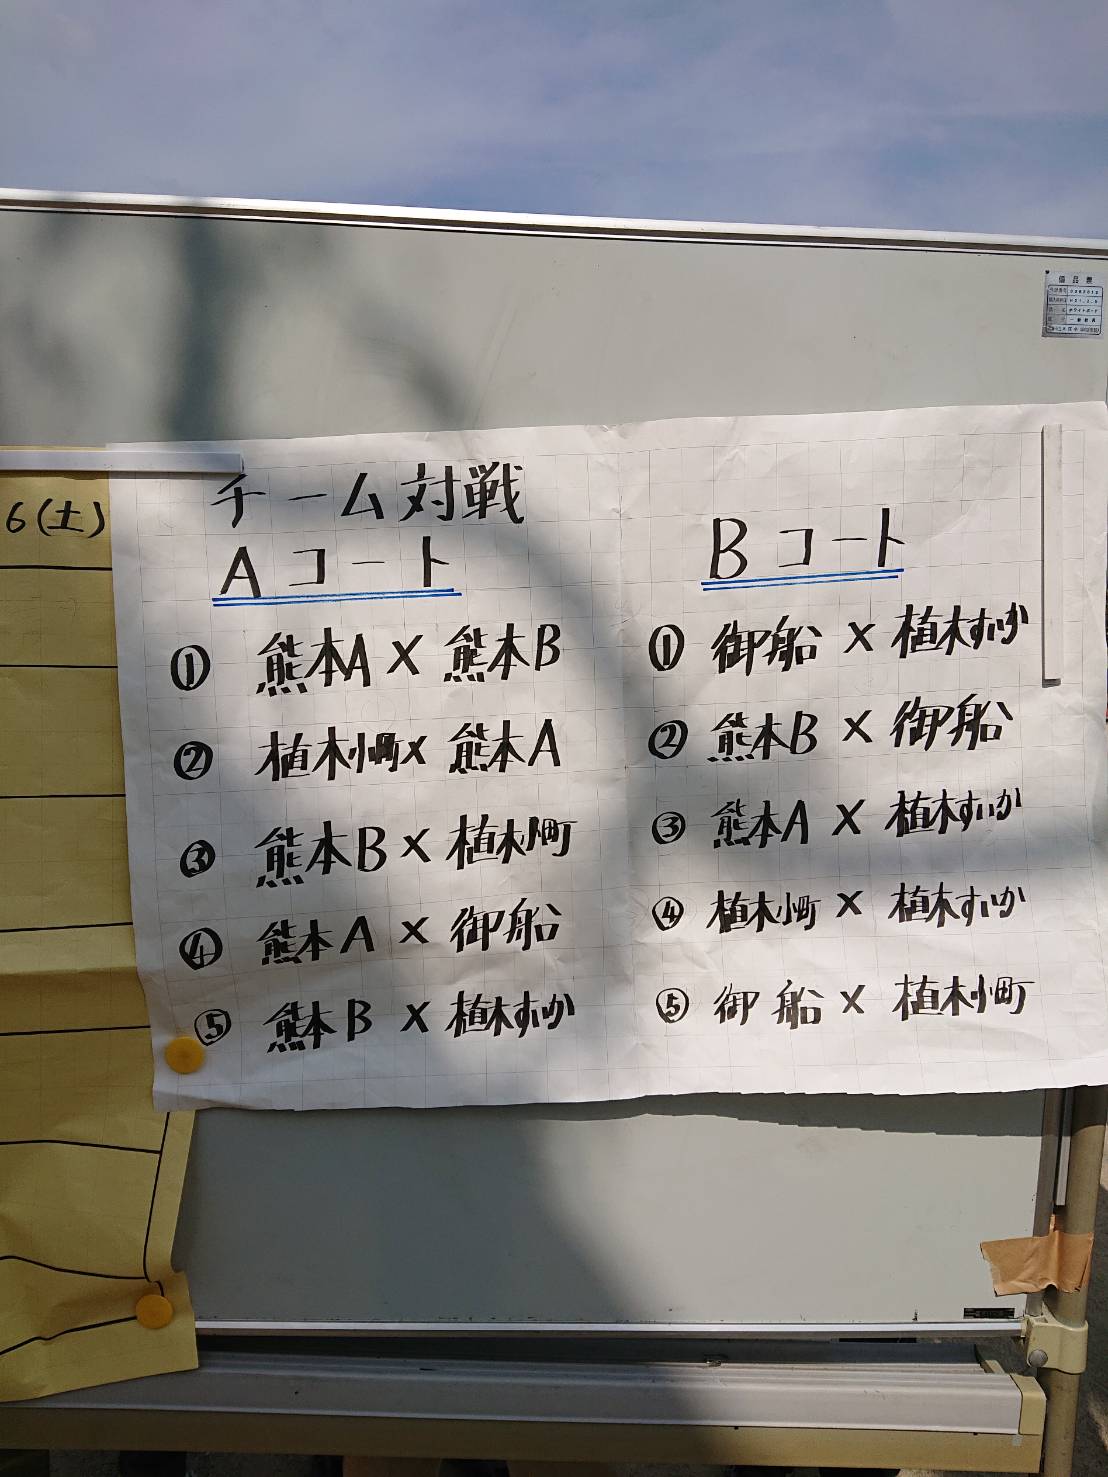 6(土)
チーム対戦
Aコート
① 熊本A × 熊本B
② 植木小町 × 熊本A
③ 熊本B × 植木小町
④ 熊本A × 御船
⑤ 熊本B × 植木すいか
Bコート
① 御船 × 植木すいか
② 熊本B × 御船
③ 熊本A × 植木すいか
④ 植木小町 × 植木すいか
⑤ 御船 × 植木小町
備品票
ホワイトボード